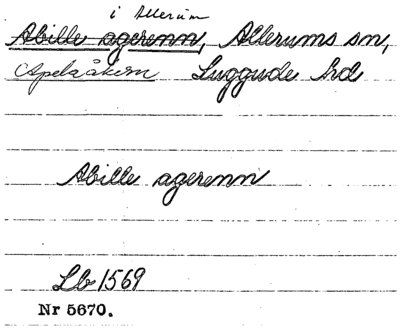 i Allerum
Abille agerenn, Allerums sn,
Apelåkern Luggude hd
Abille agerenn
Lb 1569
Nr 5670.